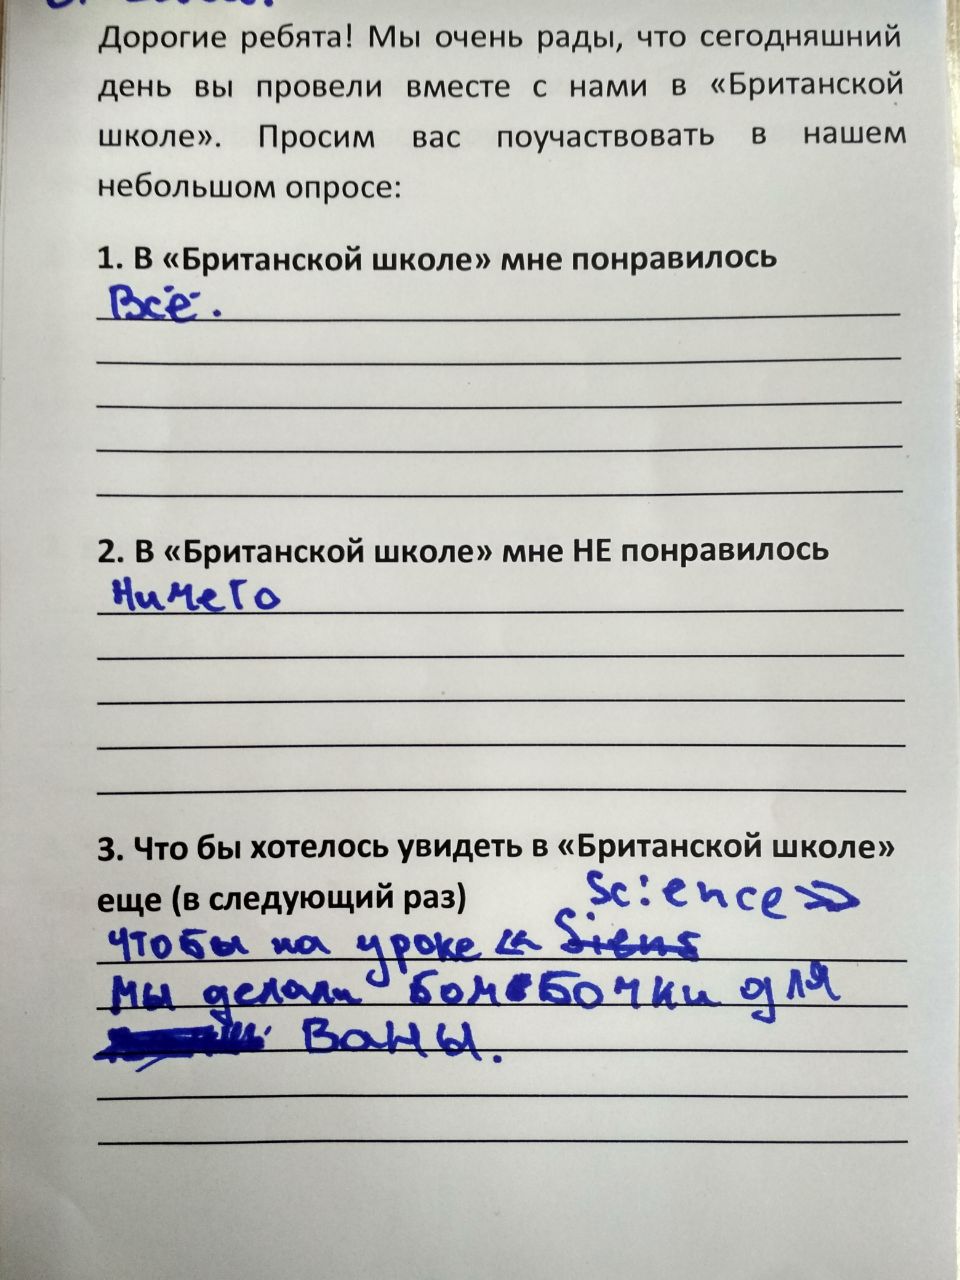 Дорогие ребята! Мы очень рады, что сегодняшний
день вы провели вместе с нами в «Британской
школе». Просим вас поучаствовать в нашем
небольшом опросе:
1. В «Британской школе» мне понравилось
Всё.
2. В «Британской школе» мне НЕ понравилось
Ничего
3. Что бы хотелось увидеть в «Британской школе»
еще (в следующий раз)
Science»
Чтобы на уроке « Siens
мы делали бомбочки для
Ваны.